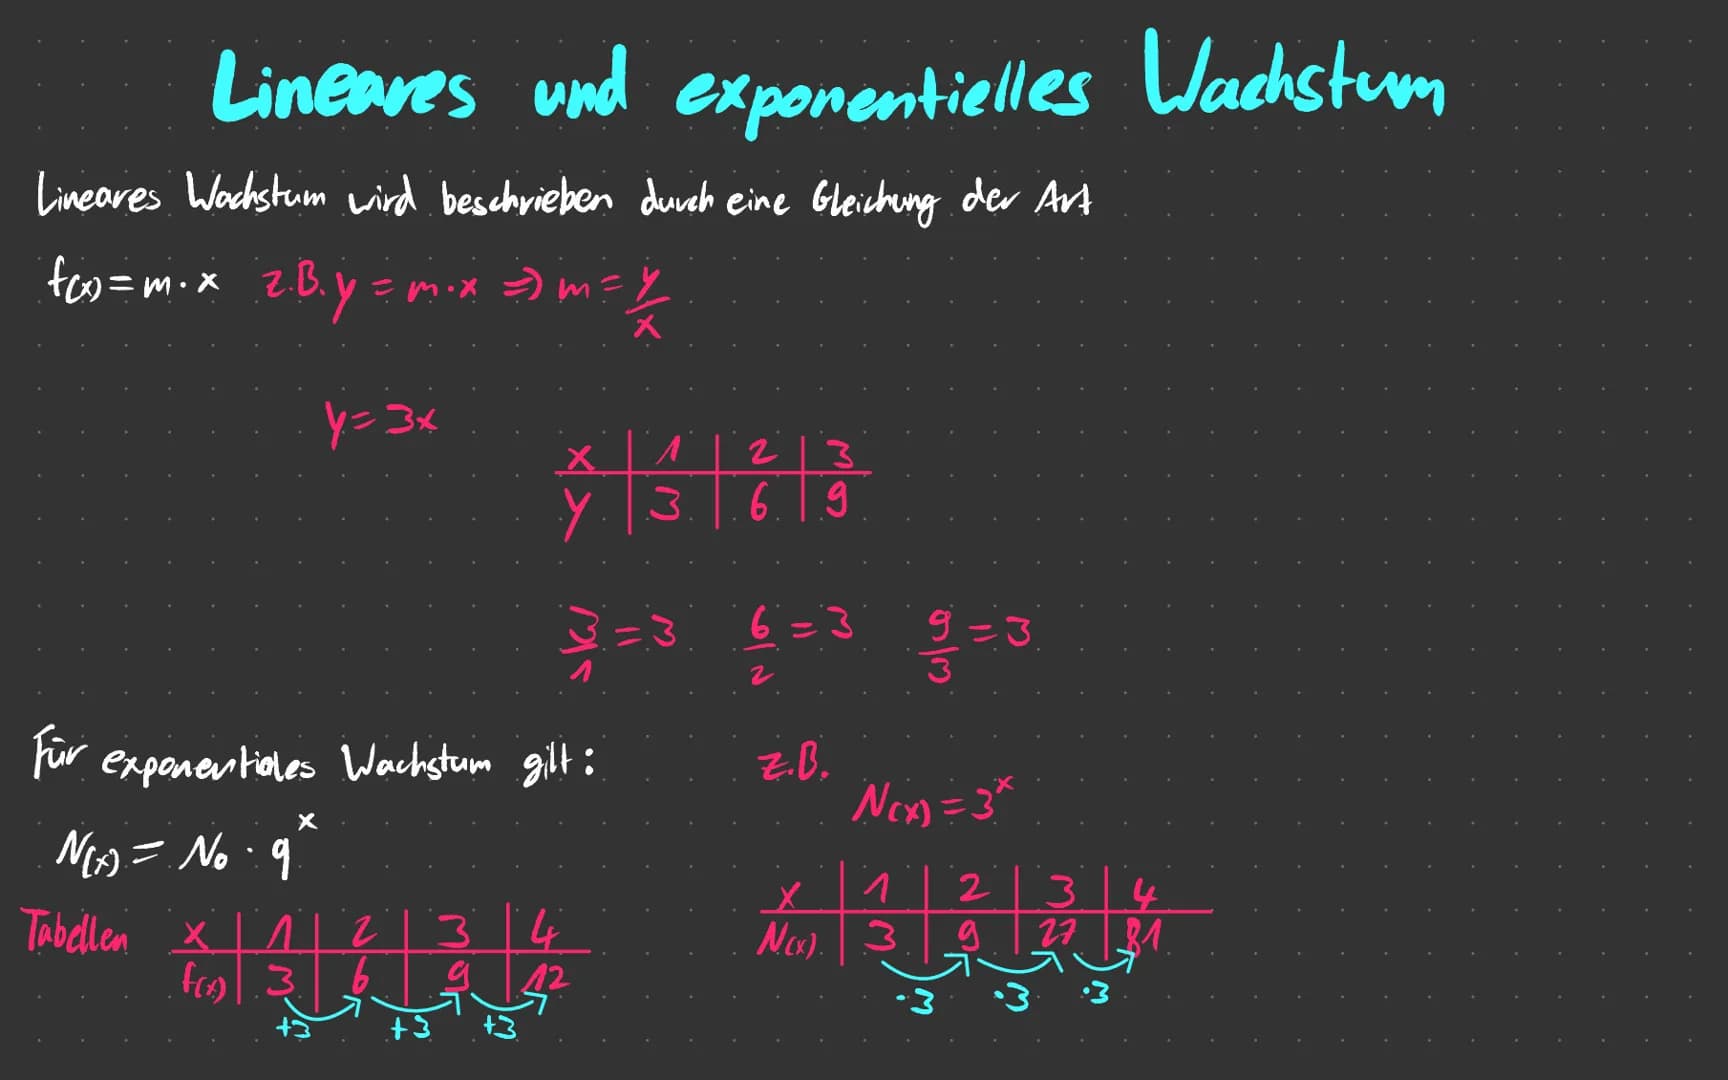 Lineares und exponentielles Wachstum
Lineares Wachstum wird beschrieben durch eine Gleichung der Art
f(x) = m · x z.B. y = m · x ⇒ m = y/x
y = 3x
x | 1 | 2 | 3
y | 3 | 6 | 9
3/1 = 3 6/2 = 3 9/3 = 3
Für exponentioles Wachstum gilt:
N(x) = N₀ · q^x
z.B.
N(x) = 3^x
Tabellen x | 1 | 2 | 3 | 4
f(x) | 3 | 6 | 9 | 12
+3 +3 +3
x | 1 | 2 | 3 | 4
N(x) | 3 | 9 | 27 | 81
·3 ·3 ·3